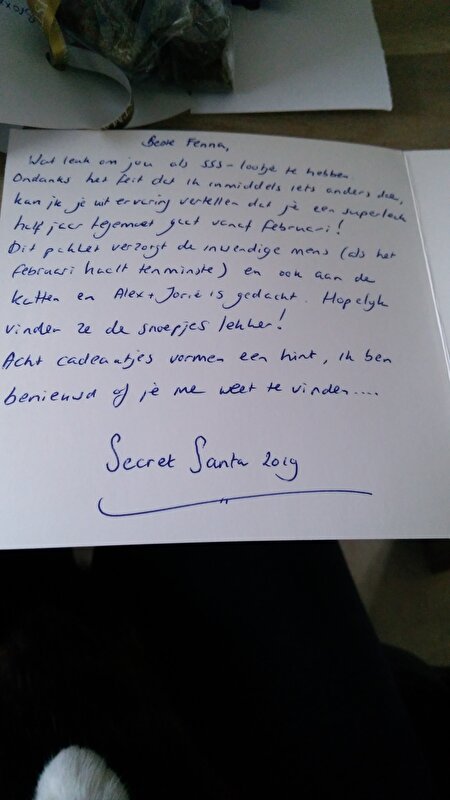 Beste Fenna,
Wat leuk om jou als SSS-lootje te hebben.
Ondanks het feit dat ik inmiddels iets anders doe,
kan ik je uit ervaring vertellen dat je een superleuk
half jaar tegemoet gaat vanaf februari!
Dit pakket verzorgt de inwendige mens (als het
februari haalt tenminste) en ook aan de
katten en Alex + Jorie is gedacht. Hopelijk
vinden ze de snoepjes lekker!
Acht cadeautjes vormen een hint, ik ben
benieuwd of je me weet te vinden....
Secret Santa 2019